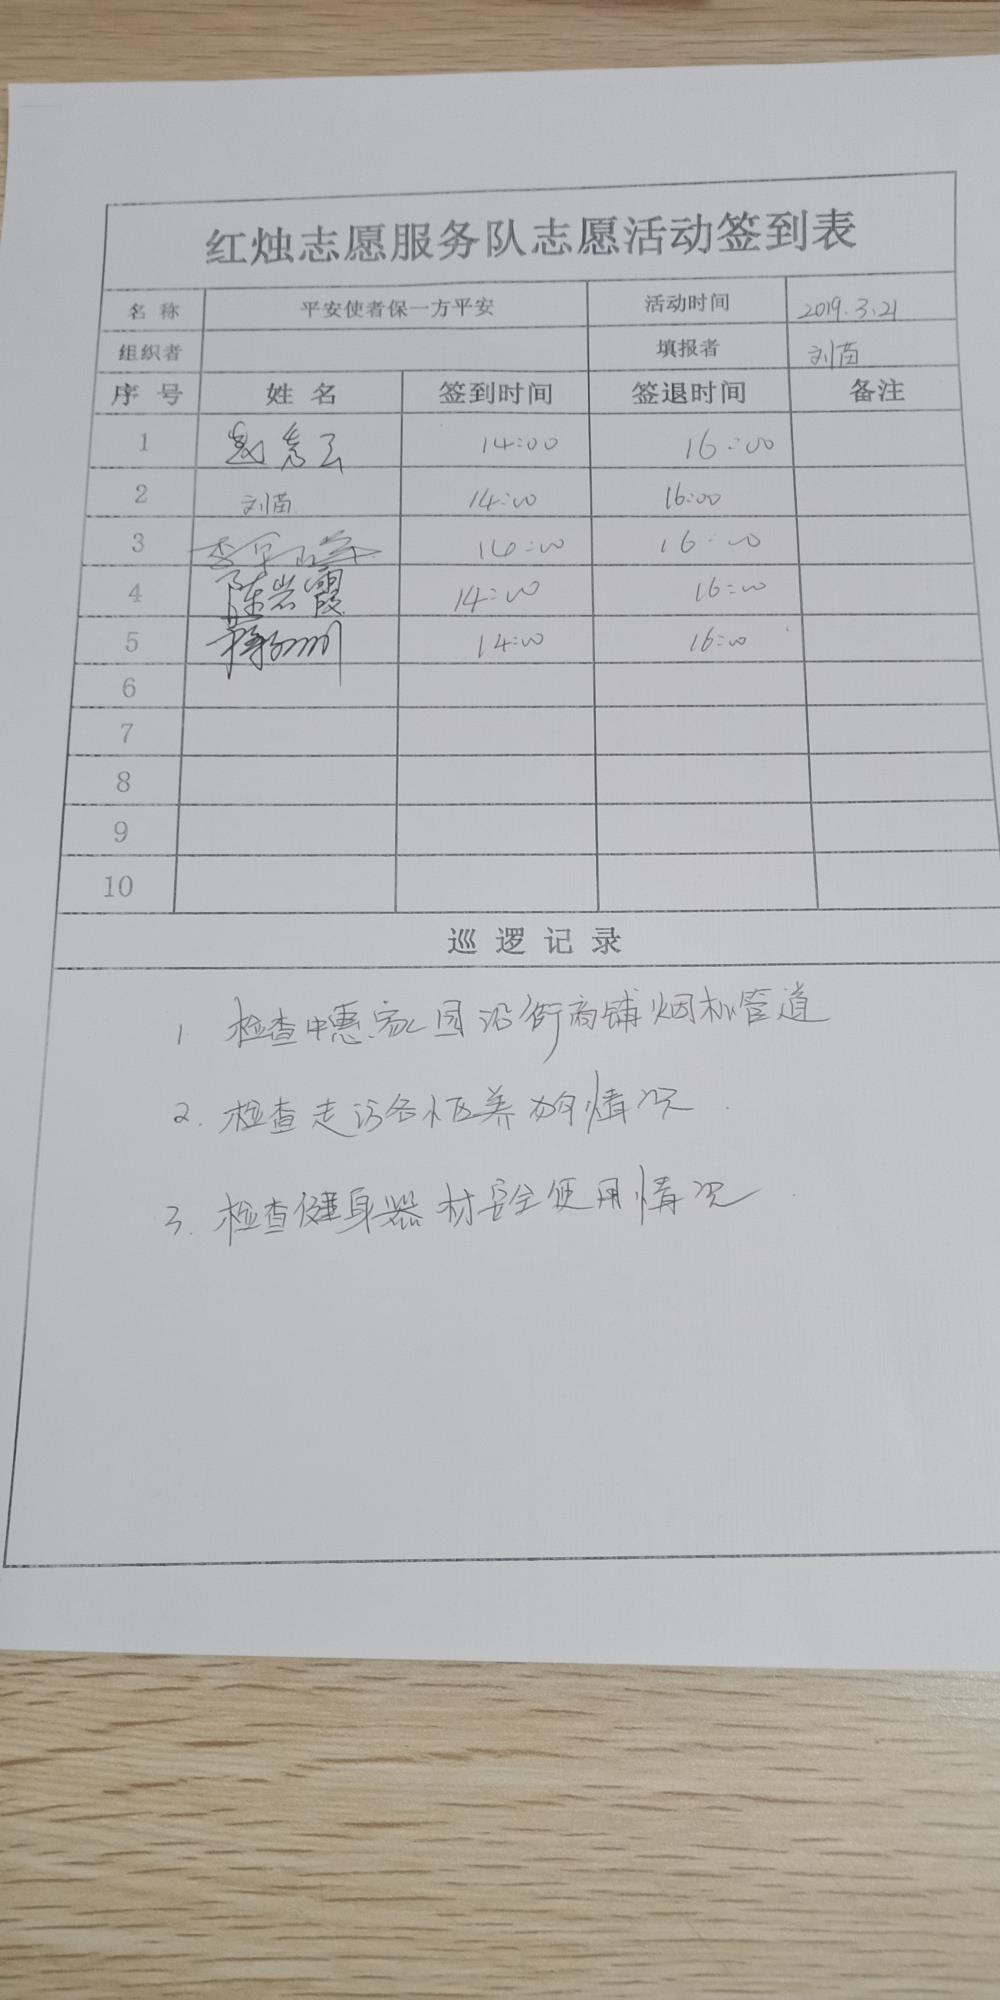 红烛志愿服务队志愿活动签到表
名 称 平安使者保一方平安 活动时间 2019.3.21
组织者 填报者 刘苗
序 号 姓 名 签到时间 签退时间 备注
1 赵秀云 14:00 16:00
2 刘苗 14:00 16:00
3 李 14:00 16:00
4 陈岩霞 14:00 16:00
5 14:00 16:00
6
7
8
9
10
巡 逻 记 录
1 检查中惠家园沿街商铺烟机管道
2. 检查走访各 养 情况
3. 检查健身器材安全使用情况